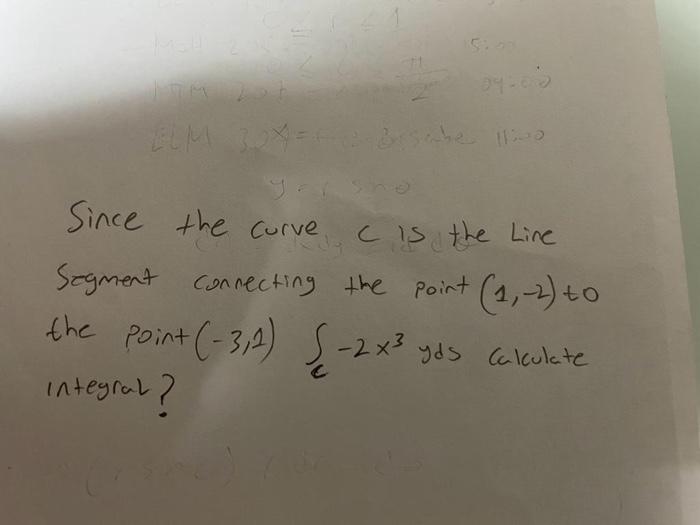 Since the curve C is the Line
Segment connecting the point (1,-2) to
the point (-3,1) ∫_C -2x³ yds Calculate
integral?